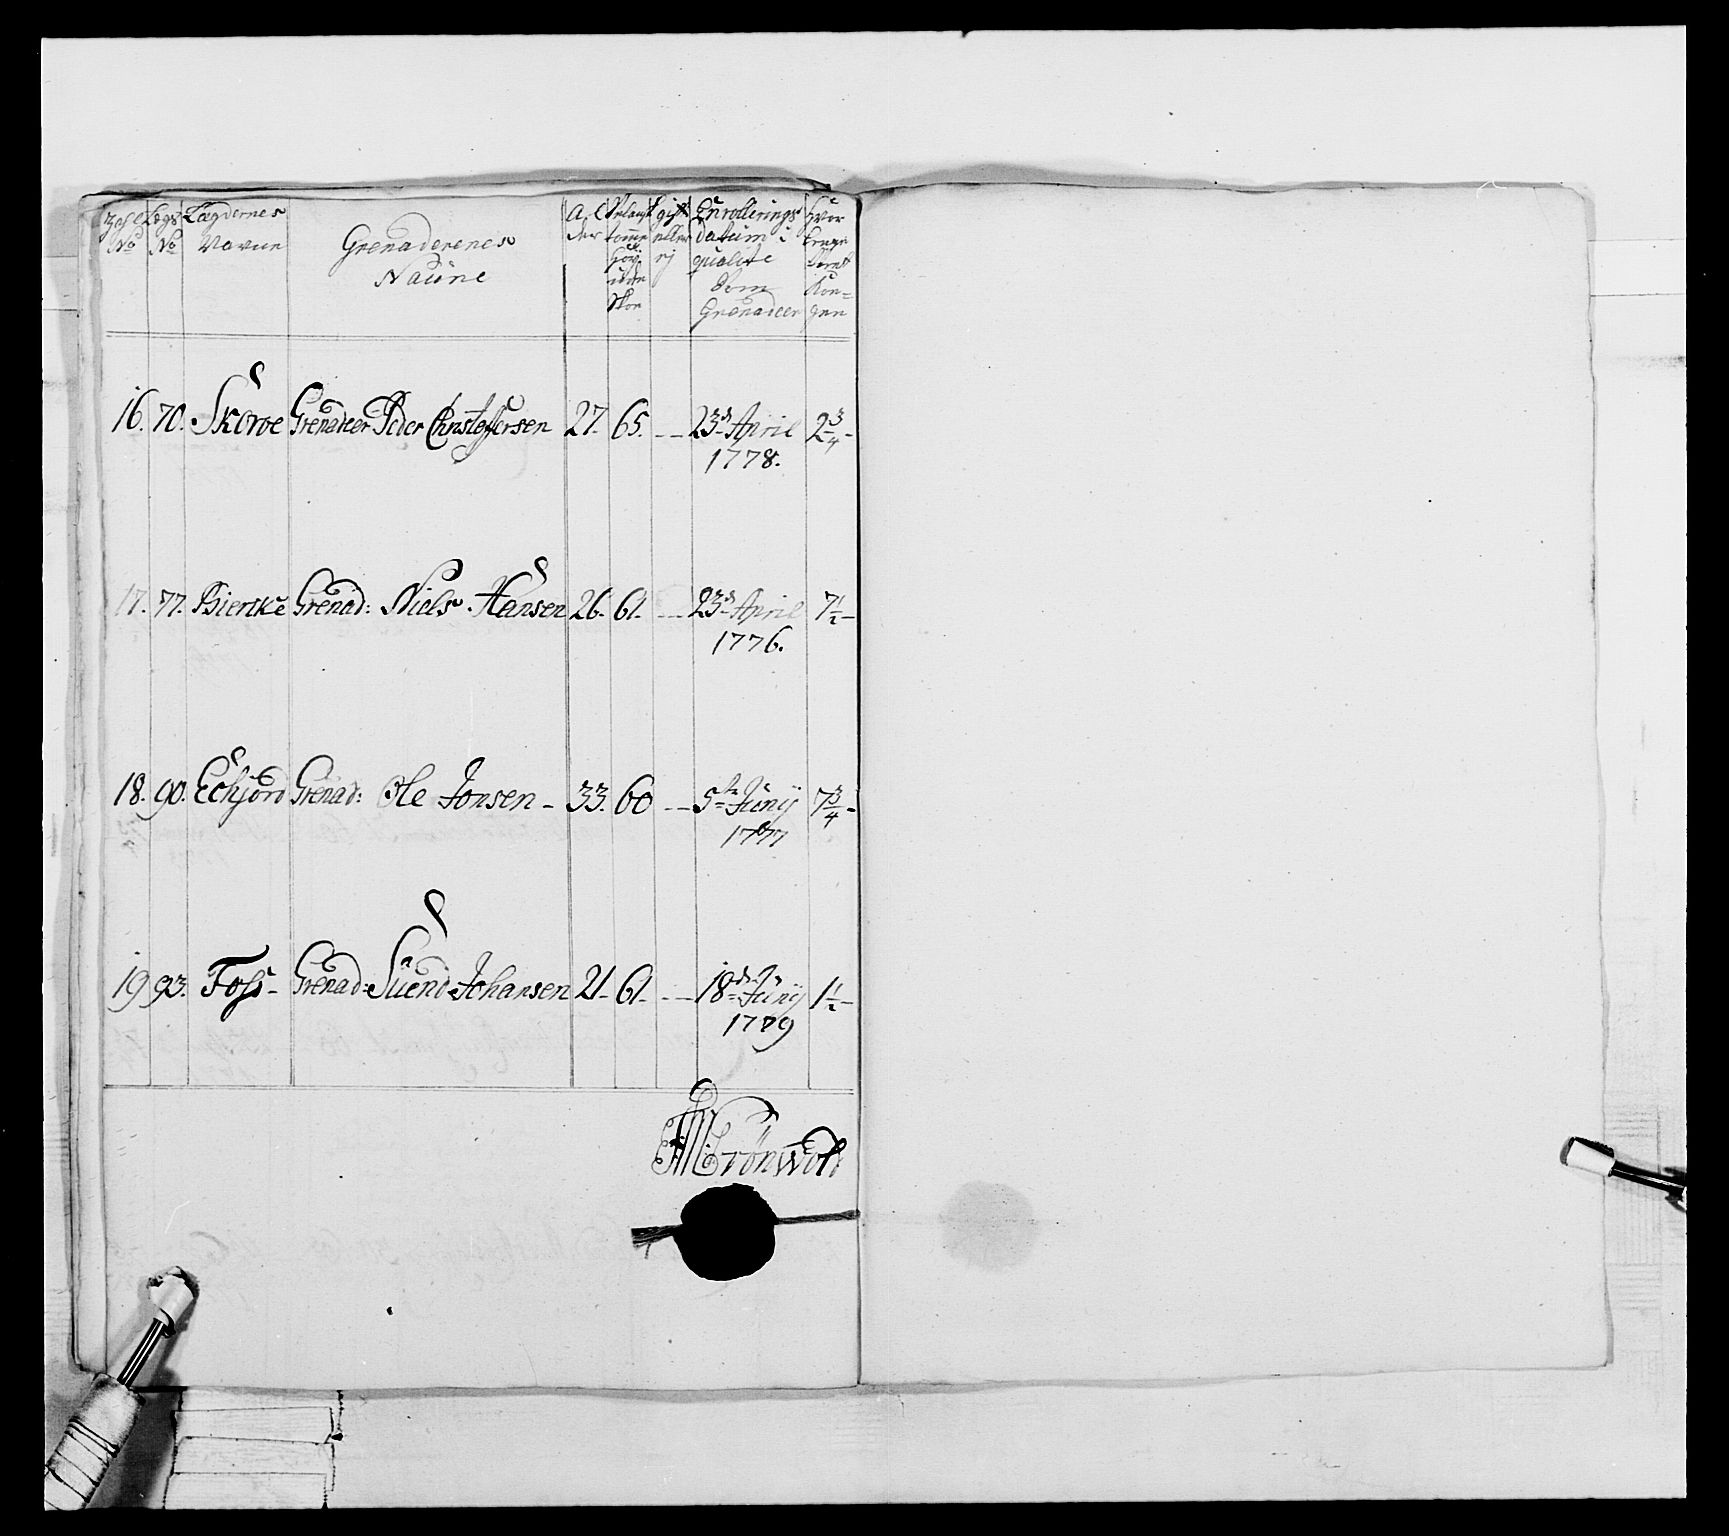 No Lægs No Lægdernes Navne Grenaderenes Naune Alder gift eller ej Enrollerings datum i qualite Som Grenadeer Hvor længe tient Kongen
16. 70. Skorve Grenadeer Peder Christophersen 27. 65. -- 23de April 1778. 2 3/4 -
17. 77. Bierke Grenad: Niels Hansen 26. 61. -- 23de April 1776. 7 1/2 -
18. 90. Echjord Grenad: Ole Jonsen - 33. 60 -- 5te Junij 1777 7 3/4 -
19 93. Foss - Grenad: Suend Johansen 21. 61. -- 18de Junij 1779 1 1/2 -
Grönvold